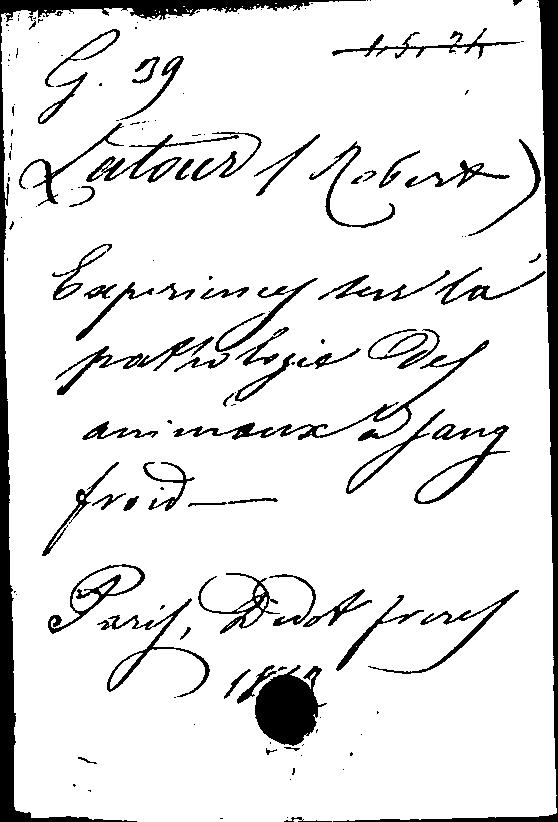 G. 39 1.5.24
Latour (Robert)
Experiences sur la
pathologie des
animaux à sang
froid—
Paris, Didot freres